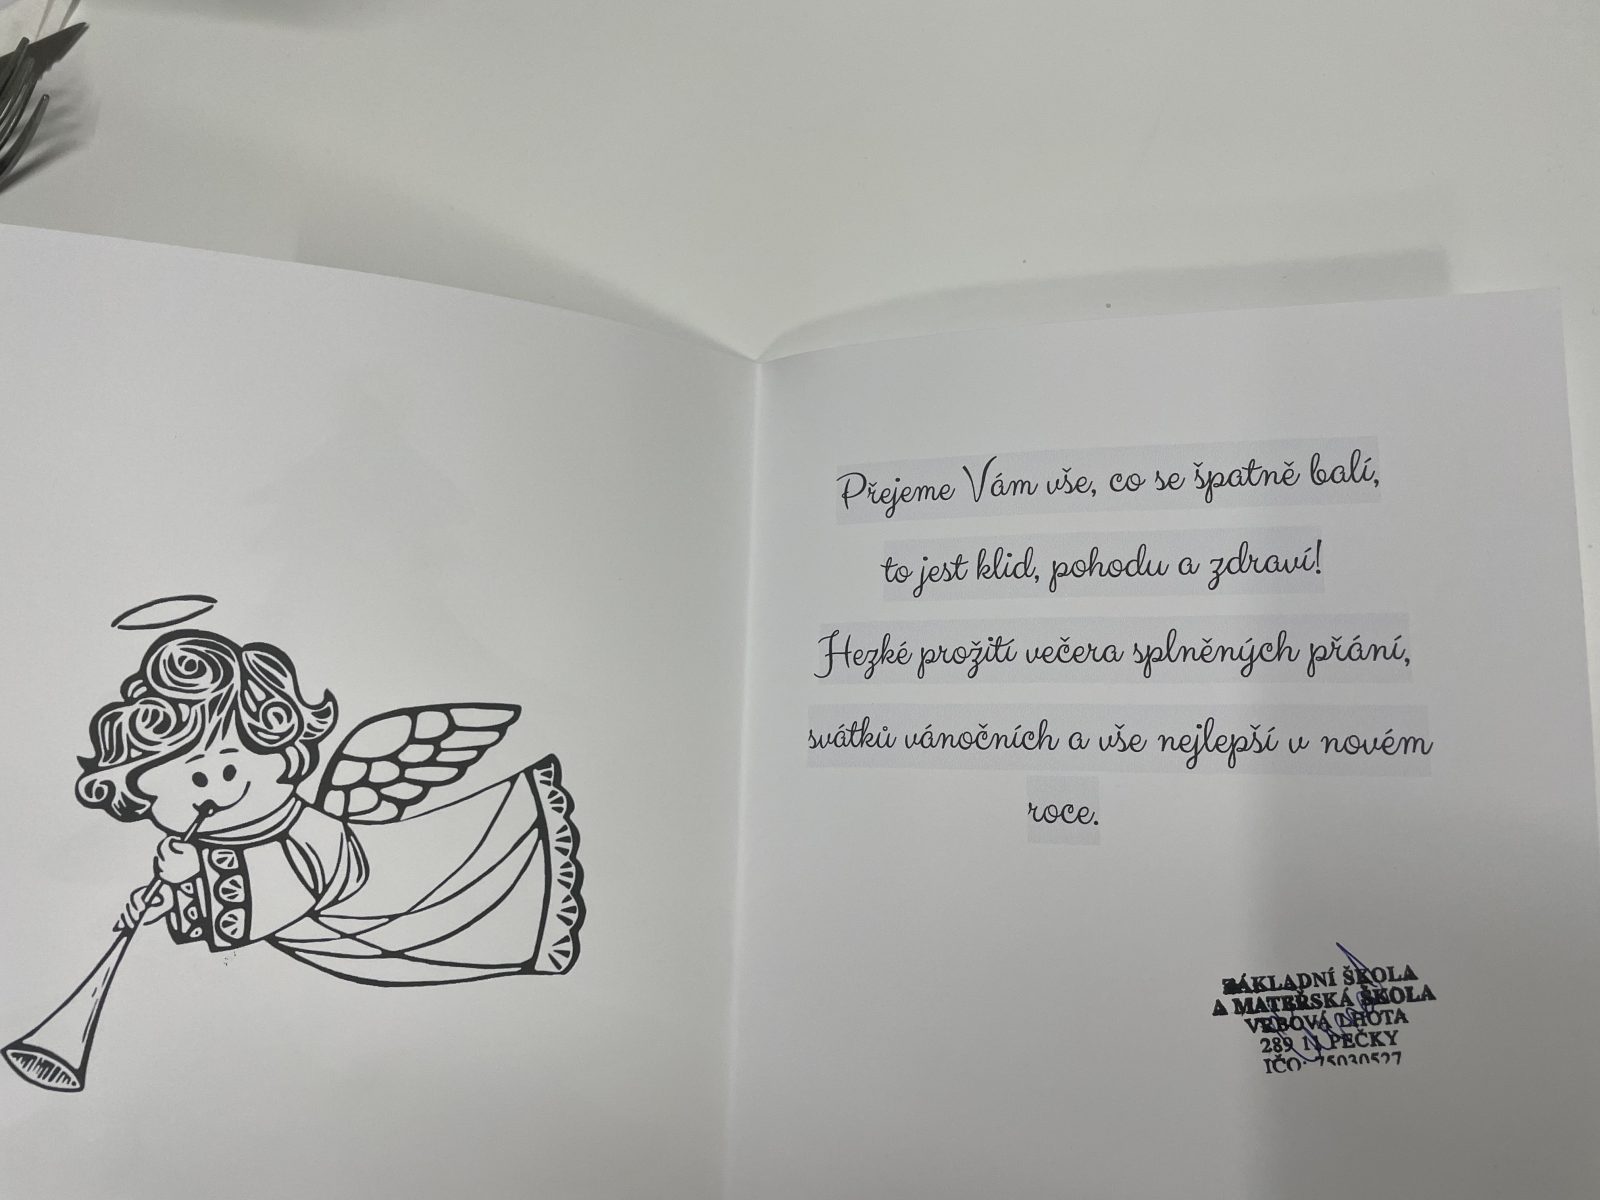 Přejeme Vám vše, co se špatně balí,
to jest klid, pohodu a zdraví!
Hezké prožití večera splněných přání,
svátků vánočních a vše nejlepší v novém
roce.
ZÁKLADNÍ ŠKOLA
A MATEŘSKÁ ŠKOLA
VRBOVÁ LHOTA
289 11 PEČKY
IČO: 75030527